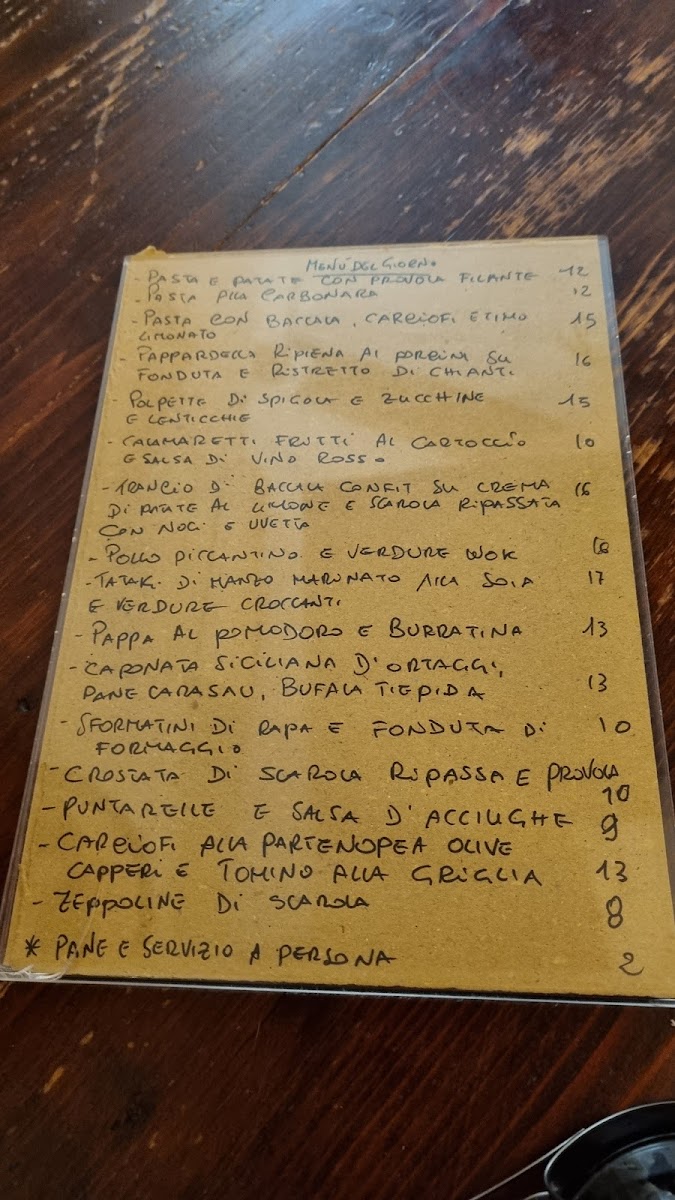 MENÙ DEL GIORNO
- PASTA E PATATE CON PROVOLA FILANTE 12
- PASTA ALLA CARBONARA 12
- PASTA CON BACCALA, CARCIOFI E TIMO 15
LIMONATO
- PAPPARDELLA RIPIENA AI PORCINI SU 16
FONDUTA E RISTRETTO DI CHIANTI
- POLPETTE DI SPIGOLA E ZUCCHINE 15
E LENTICCHIE
- CALAMARETTI FRITTI AL CARTOCCIO 10
E SALSA DI VINO ROSSO
- TRANCIO DI BACCALA CONFIT SU CREMA 16
DI PATATE AL LIMONE E SCAROLA RIPASSATA
CON NOCI E UVETTA
- POLLO PICCANTINO E VERDURE WOK
- TATAKI DI MANZO MARINATO ALLA SOIA 17
E VERDURE CROCCANTI
- PAPPA AL POMODORO E BURRATINA 13
- CAPONATA SICILIANA D'ORTAGGI,
PANE CARASAU, BUFALA TIEPIDA 13
- SFORMATINI DI RAPA E FONDUTA DI 10
FORMAGGIO
- CROSTATA DI SCAROLA RIPASSA E PROVOLA
10
- PUNTARELLE E SALSA D'ACCIUGHE 9
- CARCIOFI ALLA PARTENOPEA OLIVE
CAPPERI E TOMINO ALLA GRIGLIA 13
- ZEPPOLINE DI SCAROLA 8
* PANE E SERVIZIO A PERSONA 2